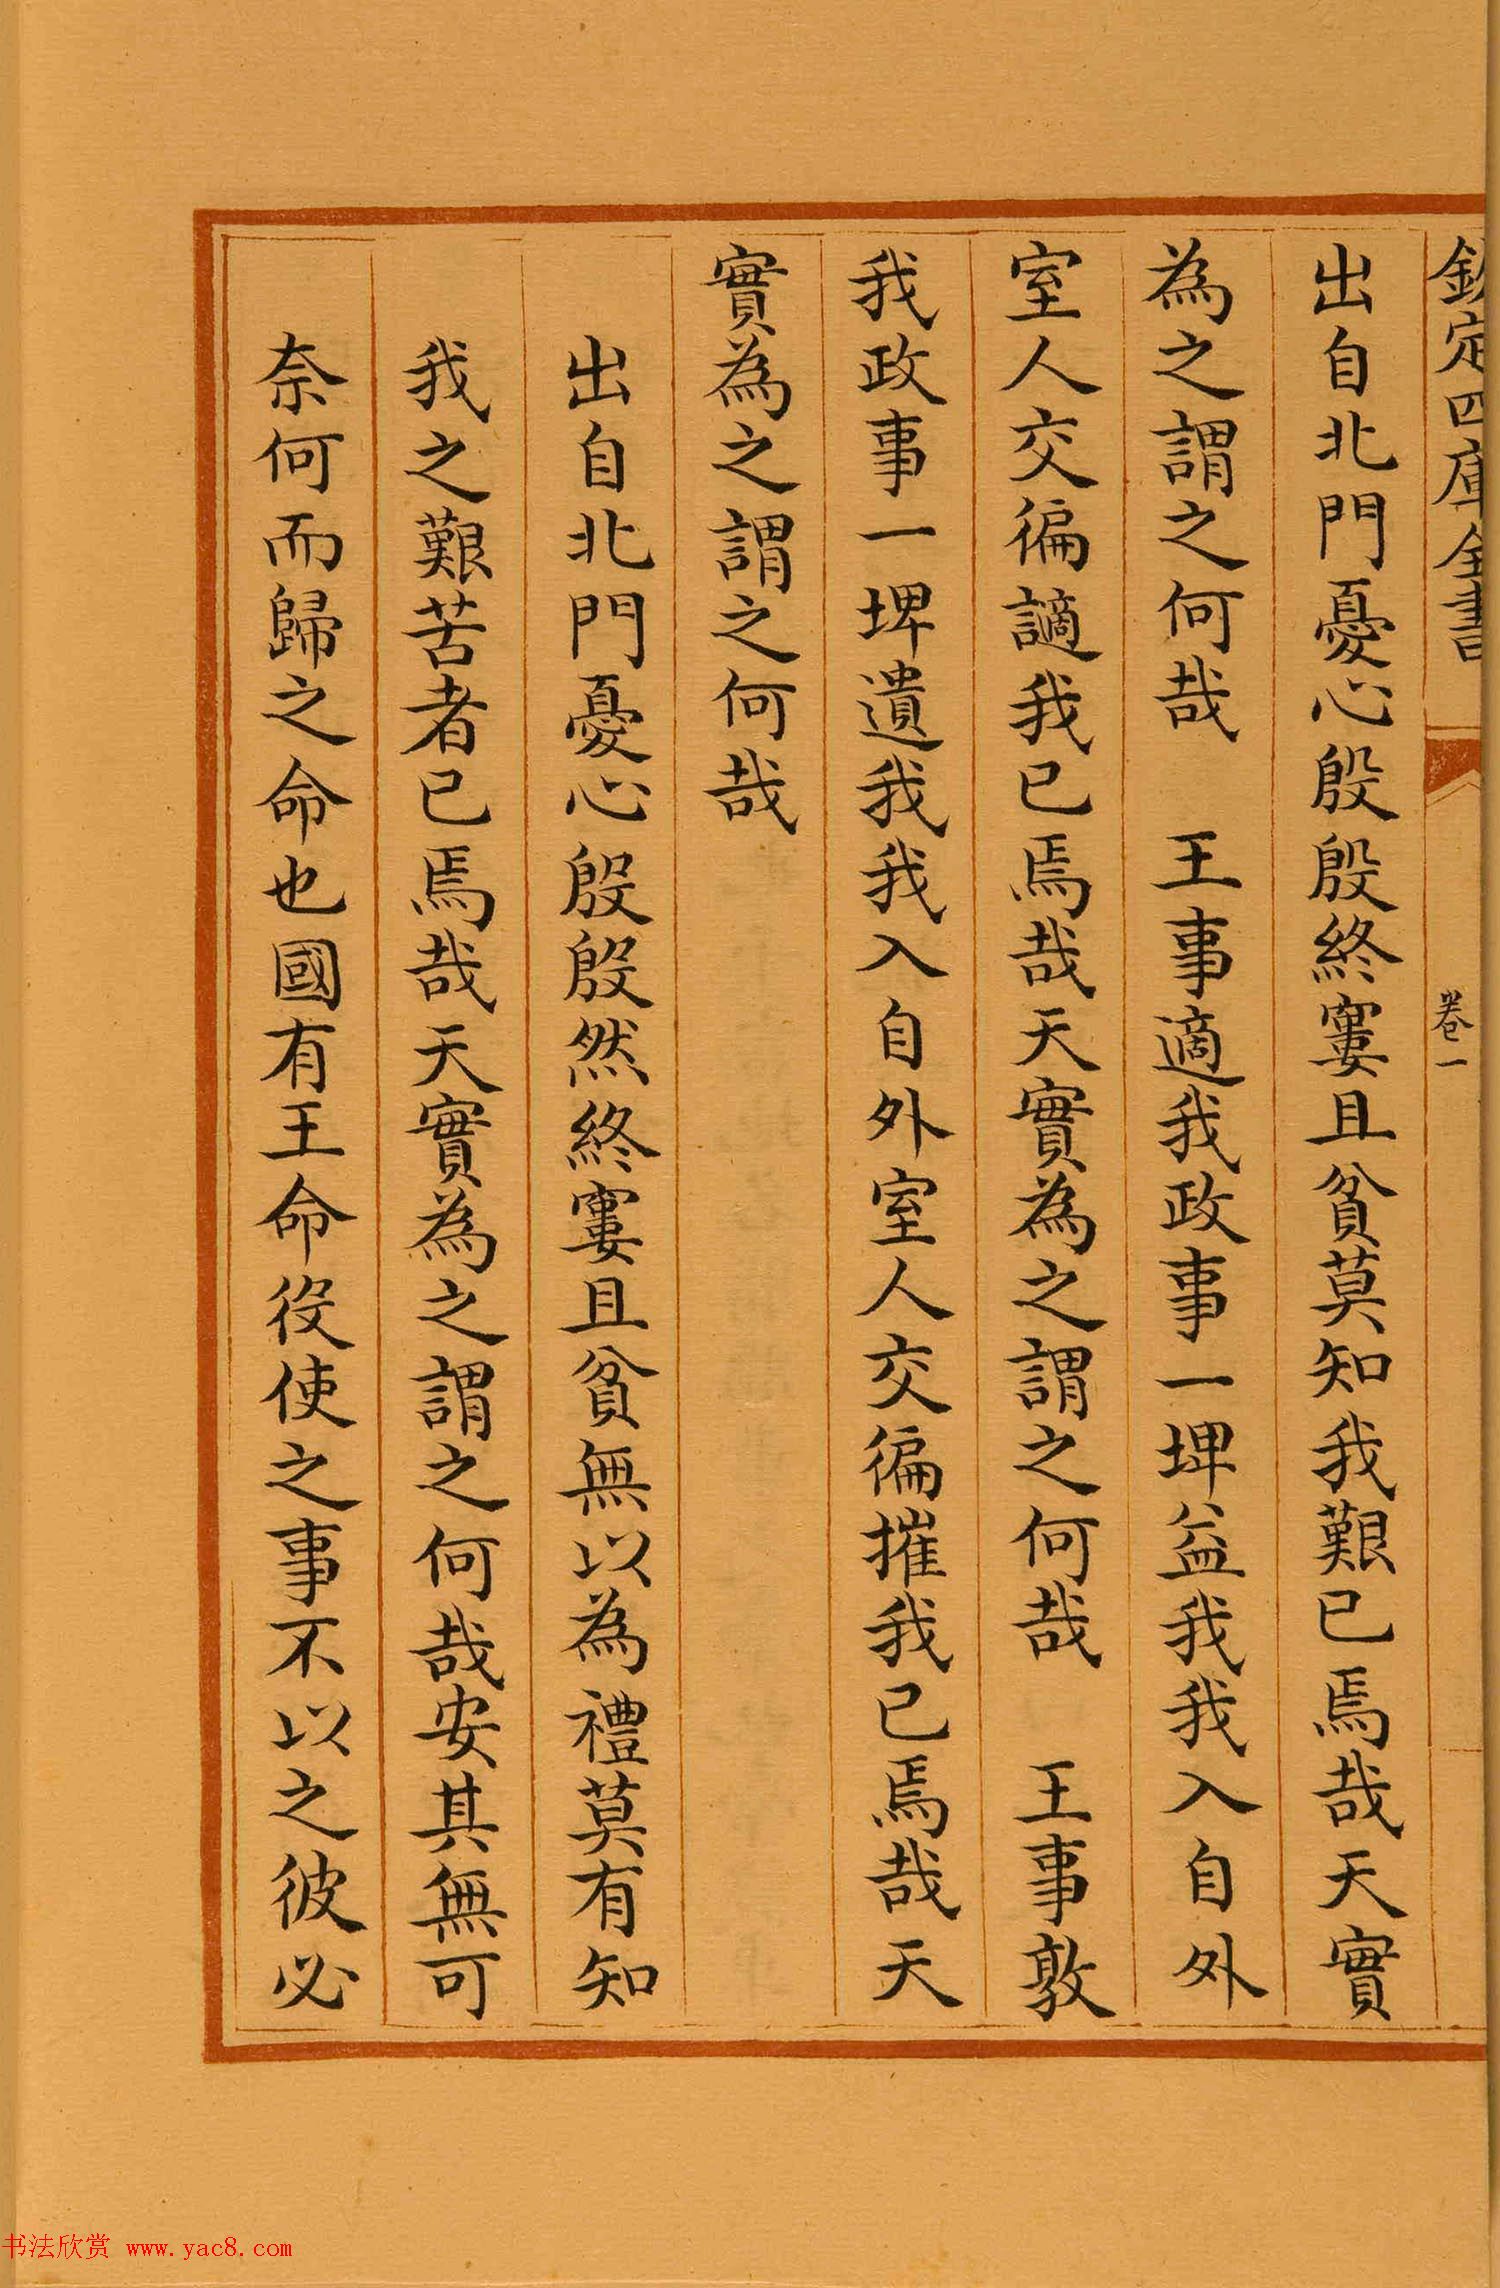 欽定四庫全書
卷一
出自北門憂心殷殷終窶且貧莫知我艱已焉哉天實
為之謂之何哉　王事適我政事一埤益我我入自外
室人交徧讁我已焉哉天實為之謂之何哉　王事敦
我政事一埤遺我我入自外室人交徧摧我已焉哉天
實為之謂之何哉
出自北門憂心殷殷然終窶且貧無以為禮莫有知
我之艱苦者已焉哉天實為之謂之何哉安其無可
奈何而歸之命也國有王命役使之事不以之彼必
书法欣赏 www.yac8.com